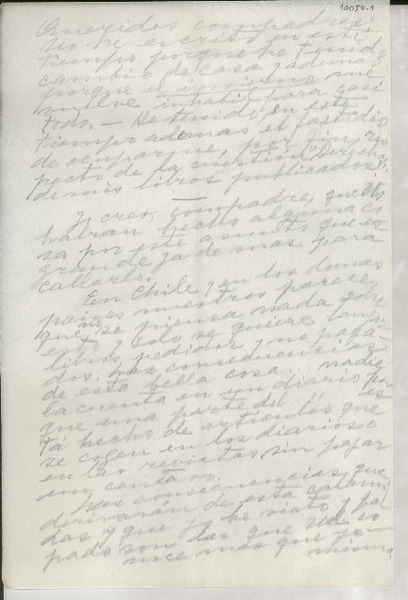 10050.1
Queridos compadres:
No he escrito en este
tiempo porque he tenido
cambio de casa y además
porque el me
vuelve inhábil para casi
todo. — He tenido en este
tiempo además el fastidio
de ocuparme, por fin, res
pecto de la cuestión "Derechos
de mis libros publicados".
Y creo, compadre, que Uds
habrán hecho alguna co
sa por este asunto que es
grande ya de más para
callarlo.
En Chile y en los demás
países nuestros parece
que no se piensa nada sobre
esto y sólo se quiere lanzar
libros, pedidos y no paga
dos. Las consecuencias
de esta bella cosa nadie
la cuenta en un diario por
que una parte del es
tá hecho de artículos que
se cogen en los diarios o
en las revistas sin pagar
un centavo.
Las consecuencias que
derivarán de esta
das y que yo he visto y pal
pado son las que Ud co
noce más que yo
misma